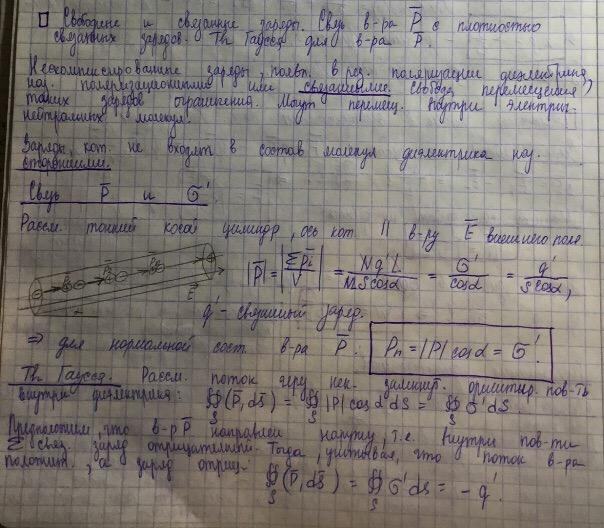 Свободные и связанные заряды. Связь в-ра P̅ с плотностью
связанных зарядов. Th Гаусса для в-ра P̅.
Нескомпенсированные заряды, появл. в рез. поляризации диэлектрика,
наз. поляризационными или связанными. Свобода перемещения
таких зарядов ограничена. Могут перемещ. внутри электрич.
нейтральных молекул.
Заряды, кот. не входят в состав молекул диэлектрика наз.
сторонними.
Связь P̅ и σ'.
Рассм. тонкий косой цилиндр, ось кот. || в-ру E̅ внешнего поля.
|P̅| = |Σp̅i / V| = Nq'L / NLScosα = σ' / cosα = q' / Scosα,
E̅
L
q' - связанный заряд.
⇒ для нормальной сост. в-ра P̅: Pn = |P| cosα = σ'.
Th Гаусса. Рассм. поток через нек. замкнут. ориентир. пов-ть
внутри диэлектрика: ∯S (P̅, dS̅) = ∯S |P| cosα dS = ∯S σ' dS
Предположим, что в-р P̅ направлен наружу, т.е. внутри пов-ти
Σ связ. заряд отрицательный. Тогда, учитывая, что поток в-ра
положит., а заряд отриц.
∯S (P̅, dS̅) = ∯S σ' dS = -q'.